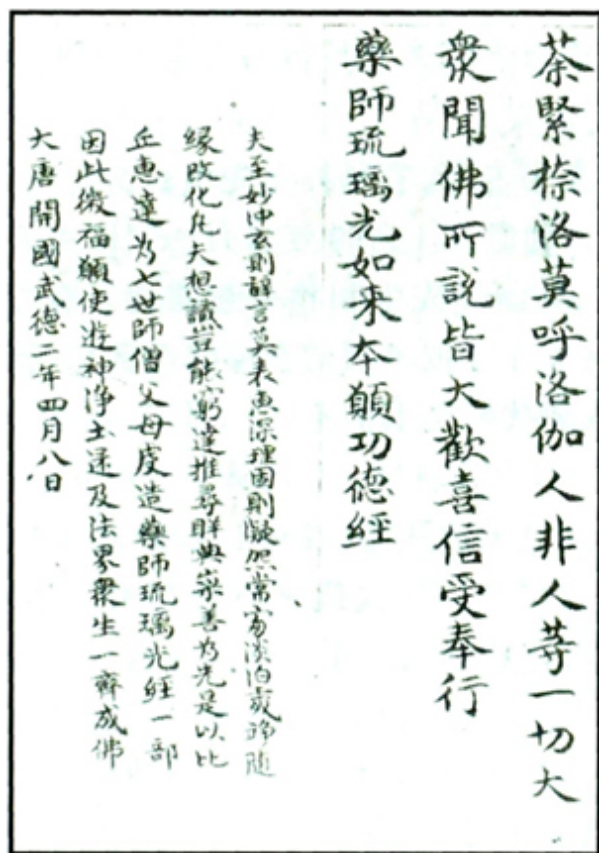 荼緊捺洛莫呼洛伽人非人等一切大
衆聞佛所說皆大歡喜信受奉行
藥師琉璃光如来本願功德經
夫至妙冲玄則辭言莫表惠深理固則凝然常寂淡泊或隨
緣改化凡夫想識豈能窮達推尋群典崇善為先是以比
丘惠達為七世師僧父母虔造藥師琉璃光經一部
因此微福願使遊神浄土逮及法界衆生一齊成佛
大唐開國武德二年四月八日